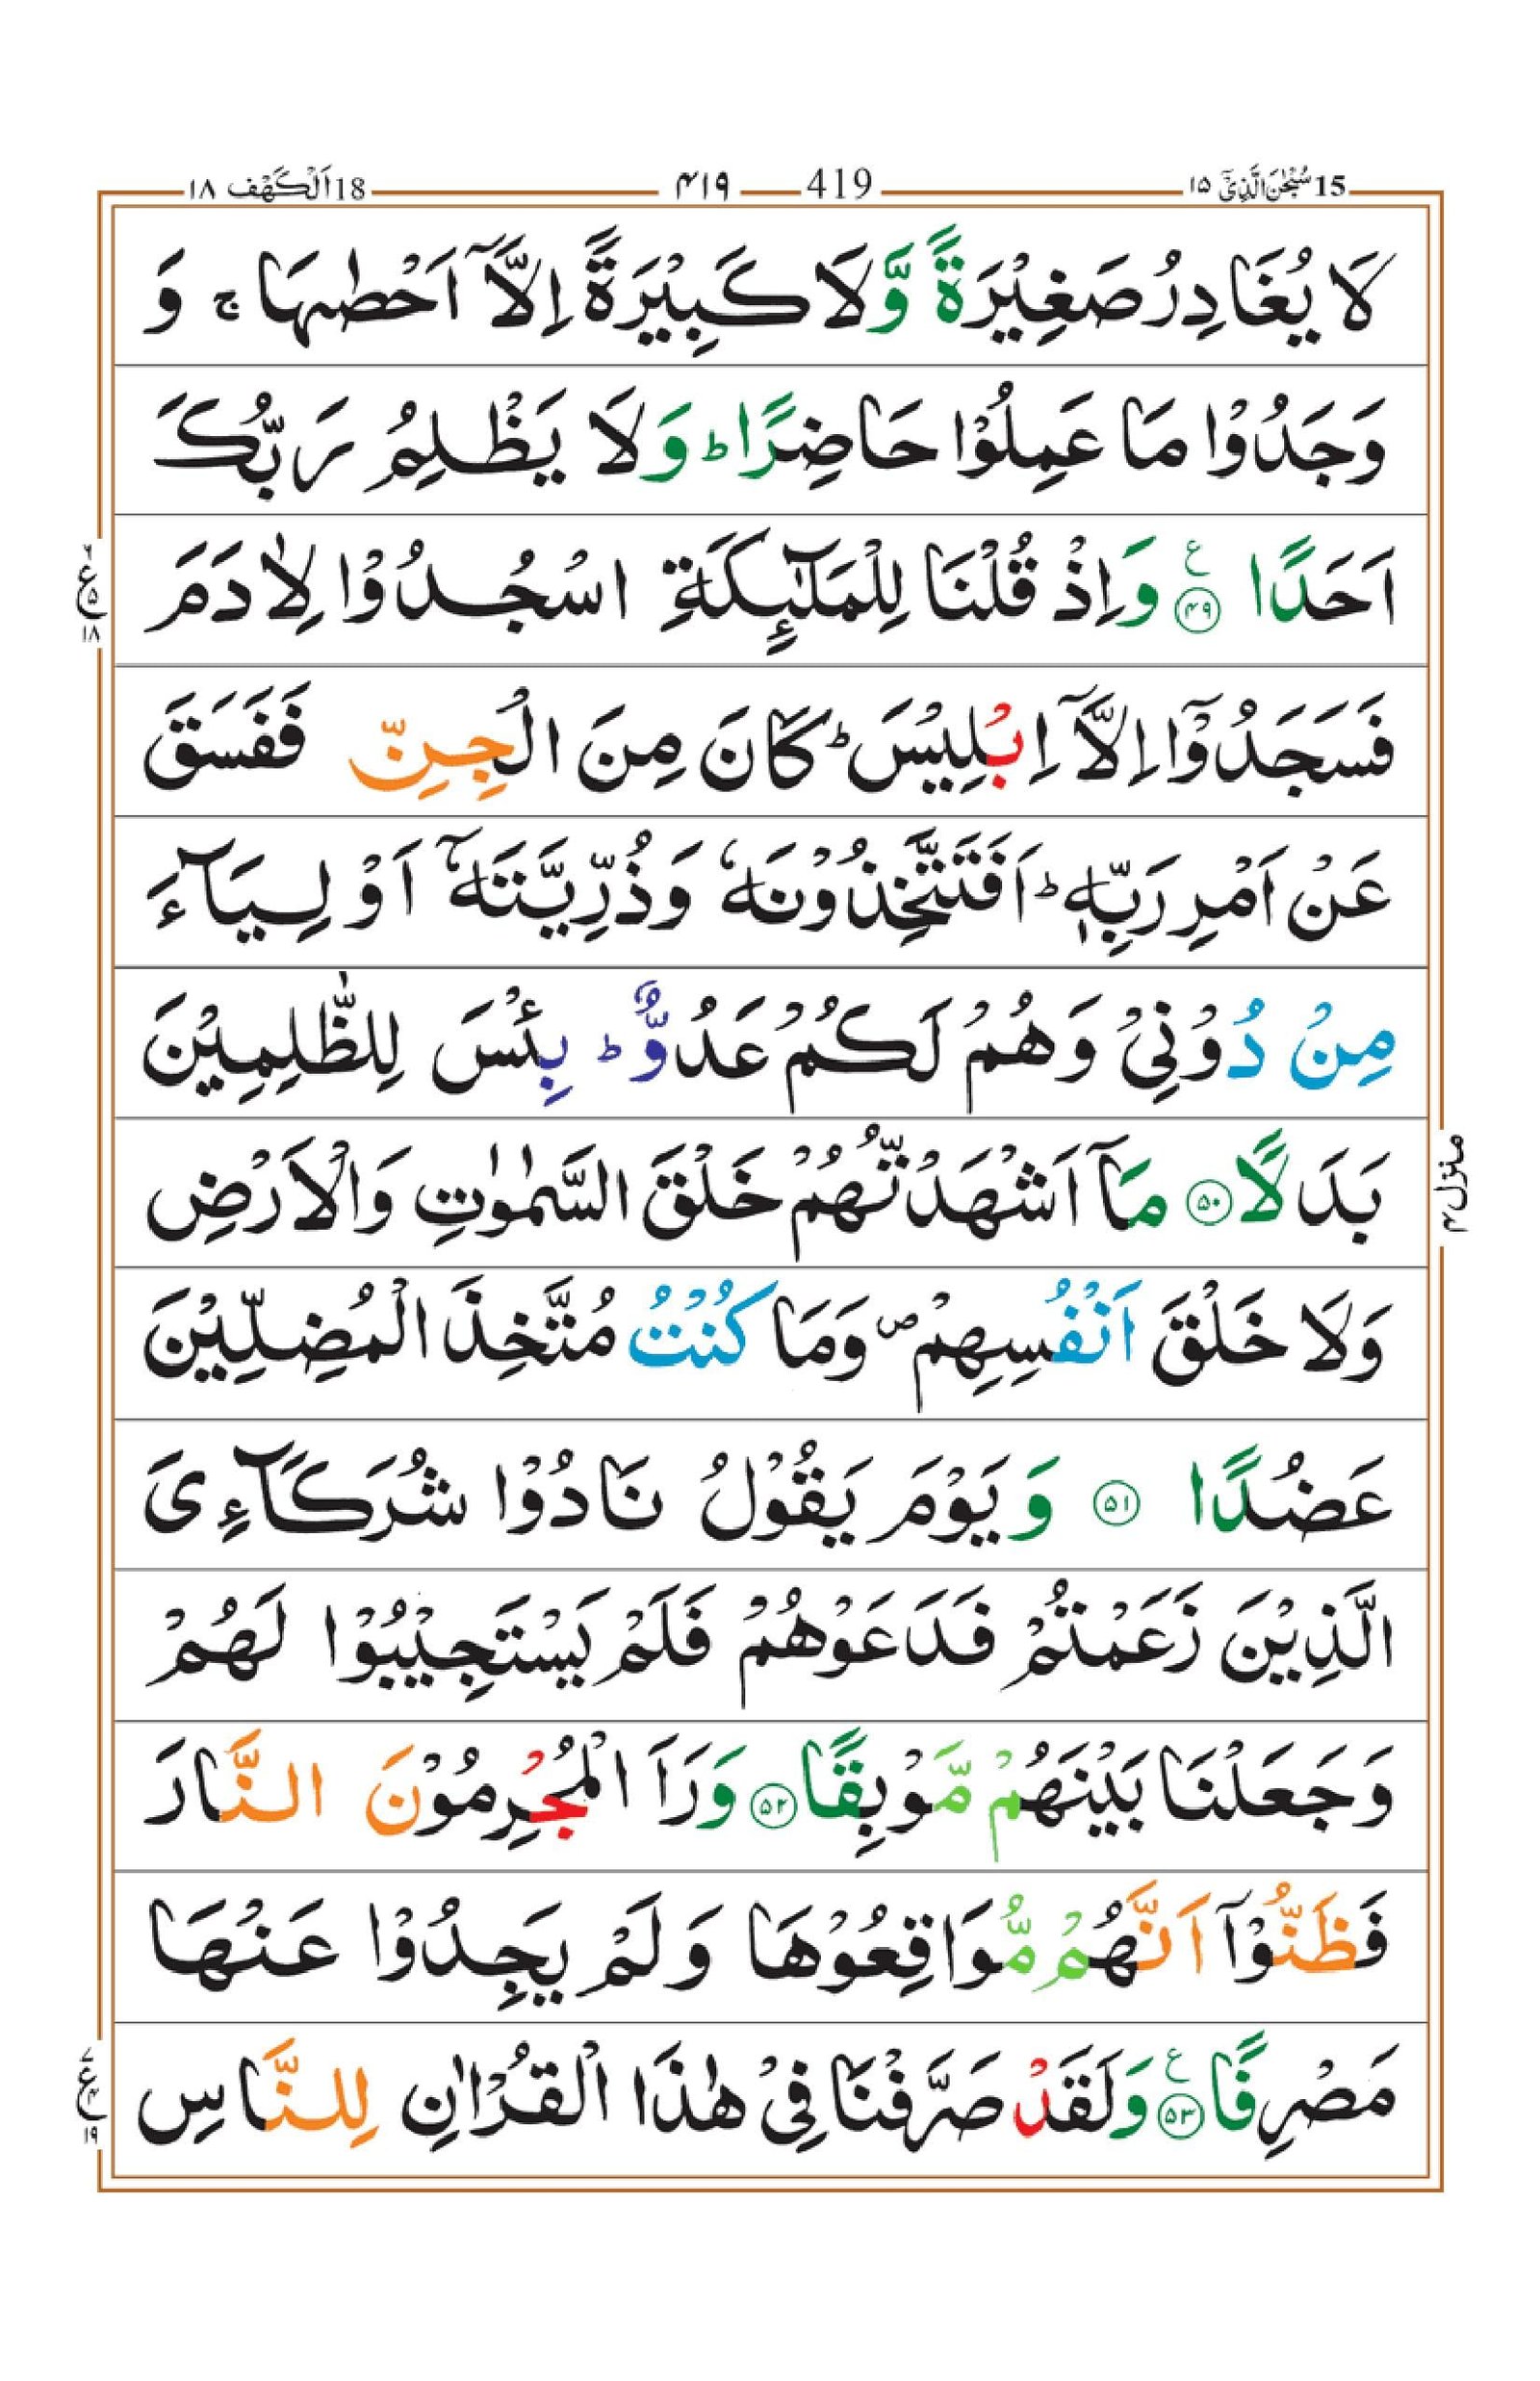 15 سُبْحٰنَ الَّذِیْۤ ۱۵
419 ۴۱۹
18 اَلْكَهْف ۱۸
لَا یُغَادِرُ صَغِیْرَةً وَّلَا كَبِیْرَةً اِلَّاۤ اَحْصٰىهَاۚ وَ
وَجَدُوْا مَا عَمِلُوْا حَاضِرًاؕ وَلَا یَظْلِمُ رَبُّكَ
اَحَدًا ع ۴۹ وَاِذْ قُلْنَا لِلْمَلٰٓىِٕكَةِ اسْجُدُوْا لِاٰدَمَ
فَسَجَدُوْۤا اِلَّاۤ اِبْلِیْسَؕ كَانَ مِنَ الْجِنِّ فَفَسَقَ
عَنْ اَمْرِ رَبِّهٖؕ اَفَتَتَّخِذُوْنَهٗ وَذُرِّیَّتَهٗۤ اَوْلِیَآءَ
مِنْ دُوْنِیْ وَهُمْ لَكُمْ عَدُوٌّؕ بِئْسَ لِلظّٰلِمِیْنَ
بَدَلًا ۵۰ مَاۤ اَشْهَدْتُّهُمْ خَلْقَ السَّمٰوٰتِ وَالْاَرْضِ
وَلَا خَلْقَ اَنْفُسِهِمْص وَمَا كُنْتُ مُتَّخِذَ الْمُضِلِّیْنَ
عَضُدًا ۵۱ وَیَوْمَ یَقُوْلُ نَادُوْا شُرَكَآءِیَ
الَّذِیْنَ زَعَمْتُمْ فَدَعَوْهُمْ فَلَمْ یَسْتَجِیْبُوْا لَهُمْ
وَجَعَلْنَا بَیْنَهُمْ مَّوْبِقًا ۵۲ وَرَاَ الْمُجْرِمُوْنَ النَّارَ
فَظَنُّوْۤا اَنَّهُمْ مُّوَاقِعُوْهَا وَلَمْ یَجِدُوْا عَنْهَا
مَصْرِفًا ع ۵۳ وَلَقَدْ صَرَّفْنَا فِیْ هٰذَا الْقُرْاٰنِ لِلنَّاسِ
ع ۵ ۱۸
منزل ۴
ع ۷ ۱۹